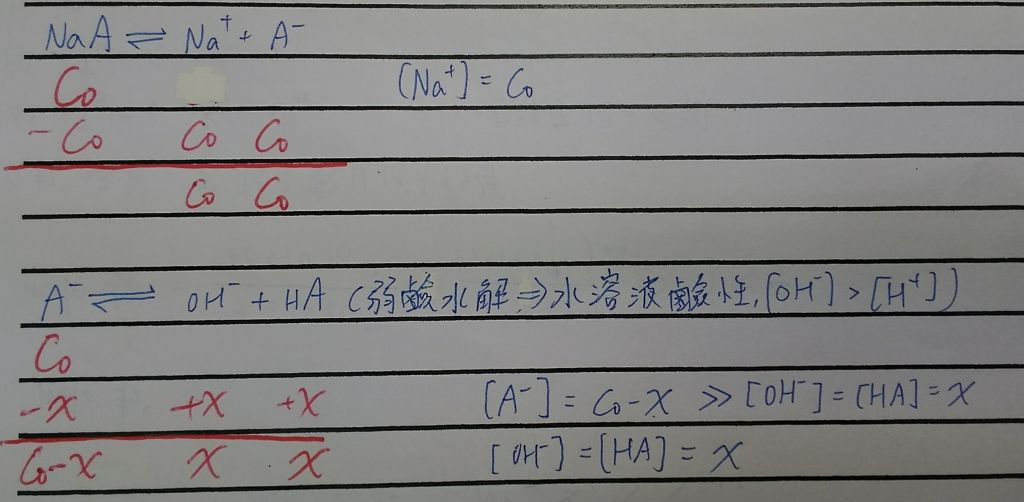 NaA ⇌ Na⁺ + A⁻
C₀ [Na⁺] = C₀
-C₀ C₀ C₀
C₀ C₀
A⁻ ⇌ OH⁻ + HA (弱鹼水解⇒水溶液鹼性, [OH⁻] > [H⁺])
C₀
-x +x +x [A⁻] = C₀-x ≫ [OH⁻] = [HA] = x
C₀-x x x [OH⁻] = [HA] = x